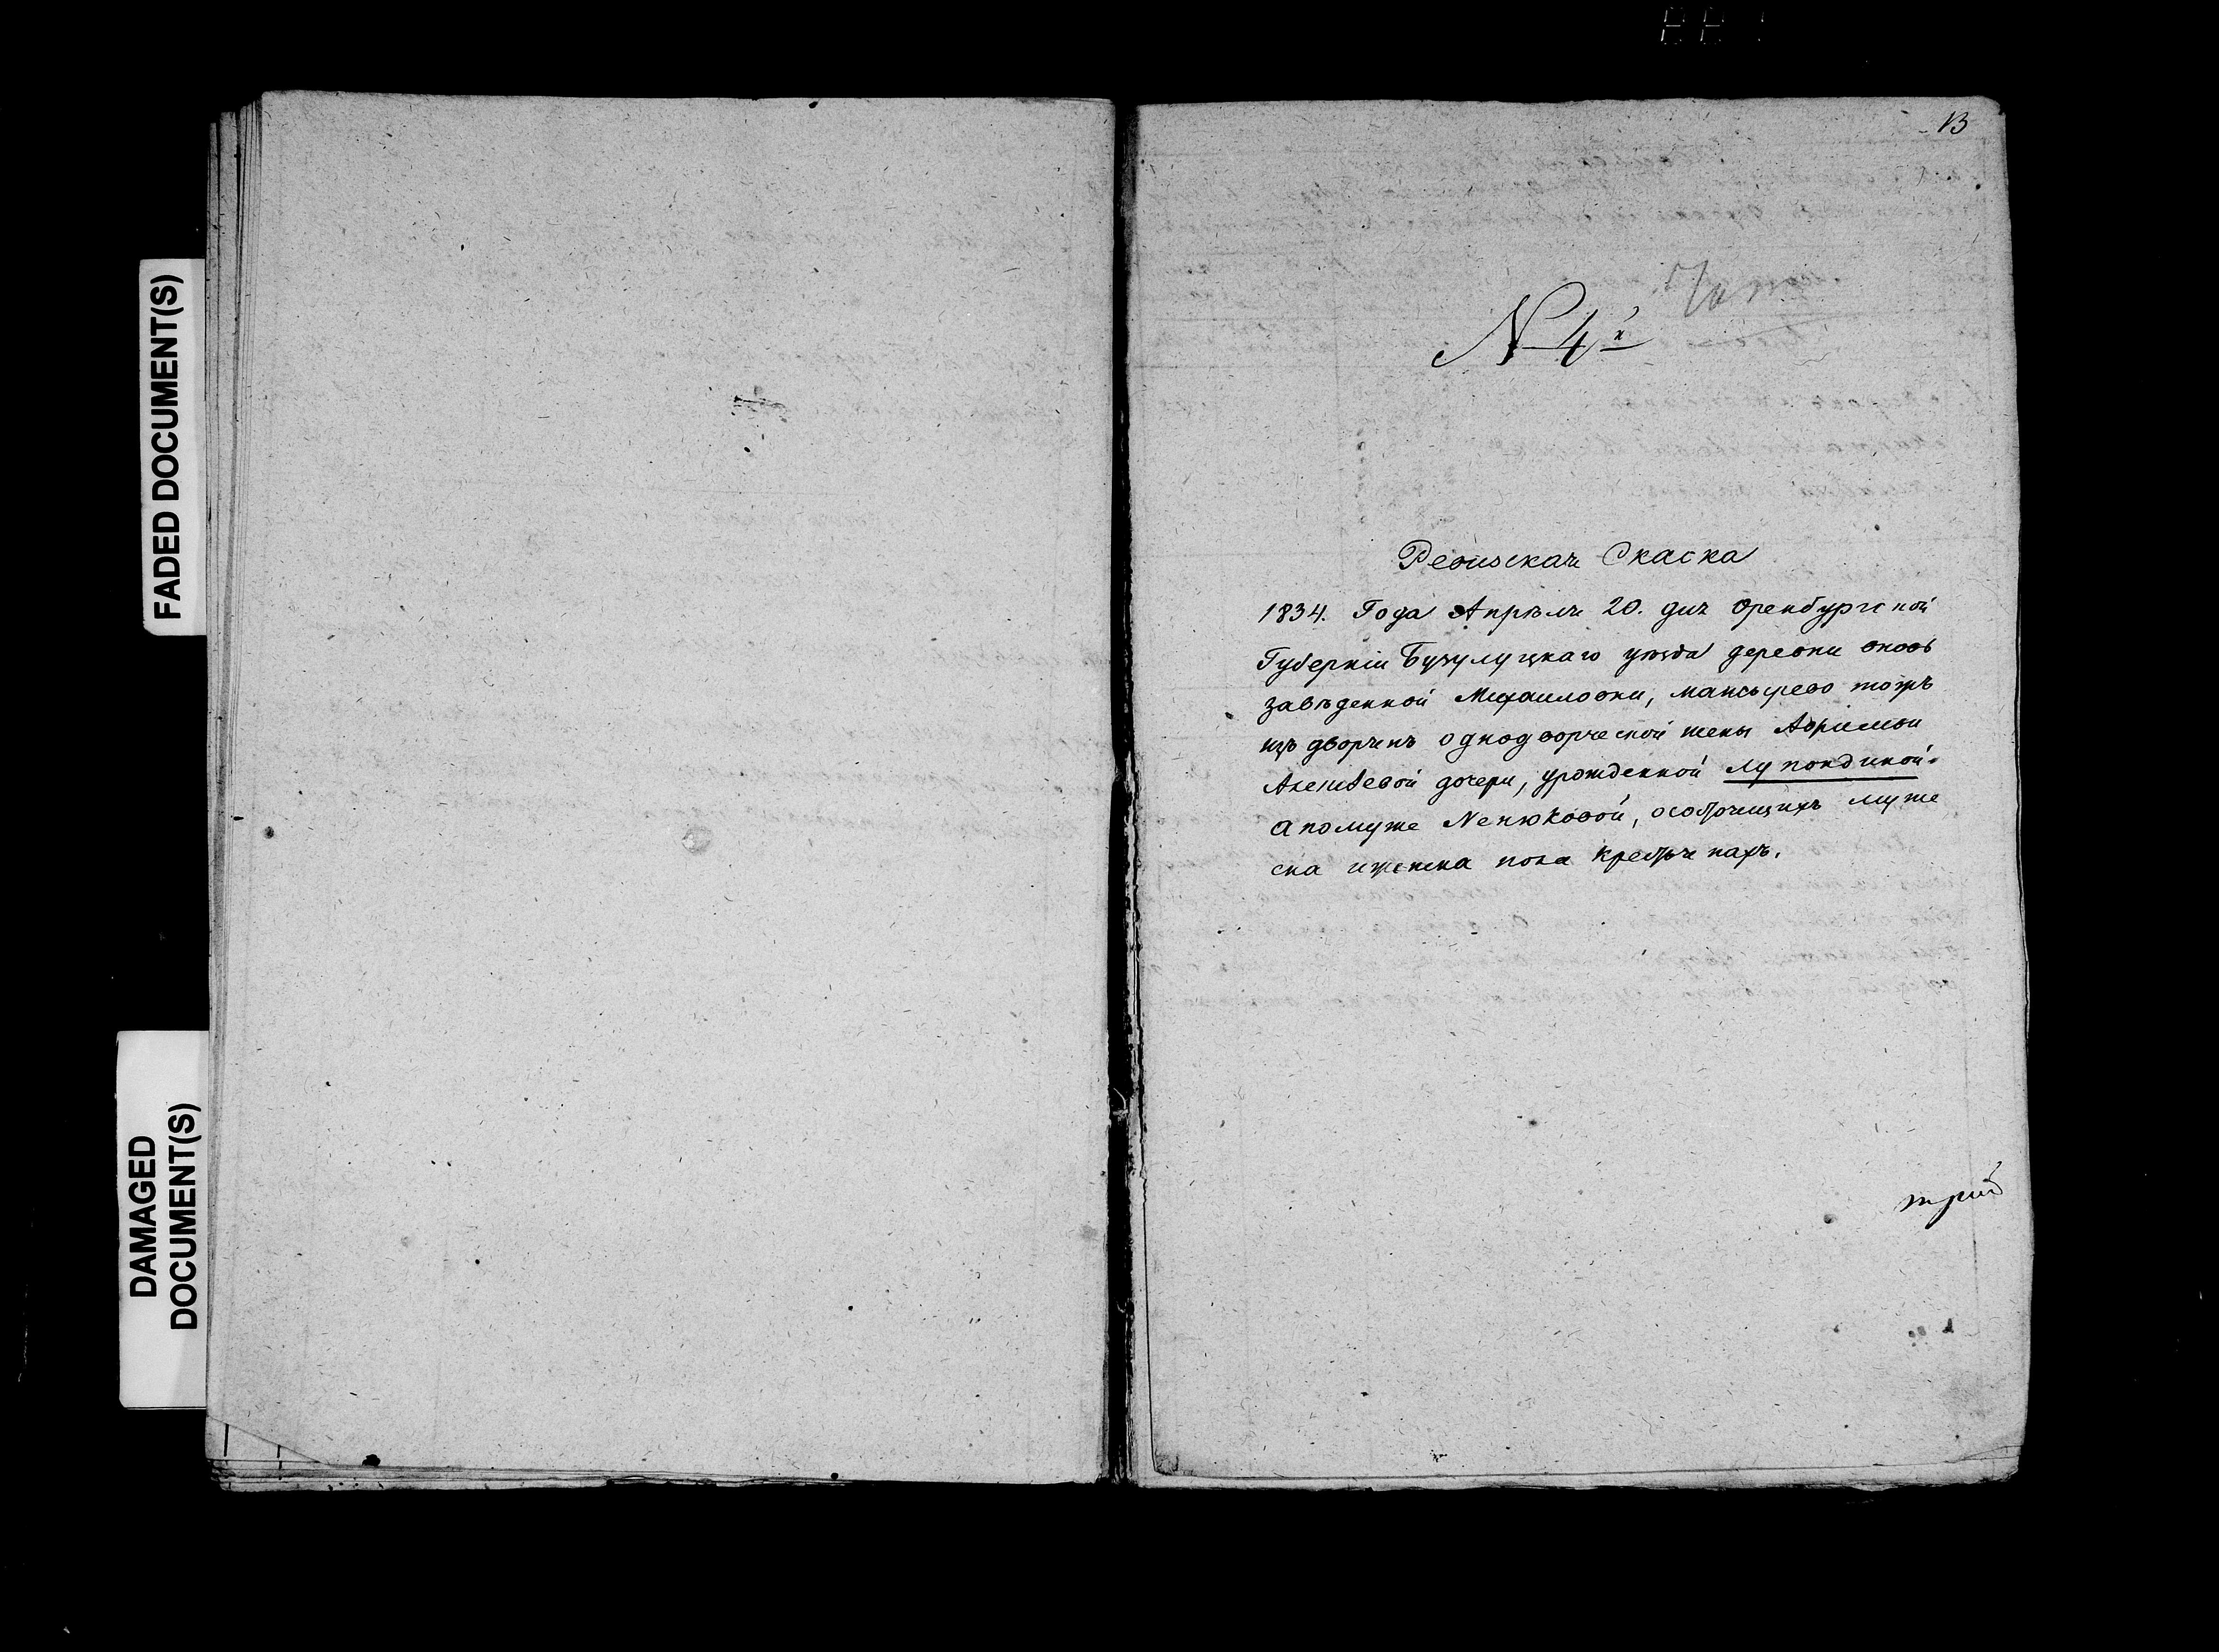 FADED DOCUMENT(S)
DAMAGED
DOCUMENT(S)
13
N 4й
Ревизская Скаска
1834. Года Апрѣля 20. дня Оренбургской
Губерніи Бузулуцкаго уѣзда деревни вновь
завѣденной Михаиловки, Мансырево тожъ
изъ дворянъ однодворческой жены
дочери, урожденной Лупондиной
а помуже Ненюковой, осостоящихъ муже
ска иженска пола крестьянахъ.